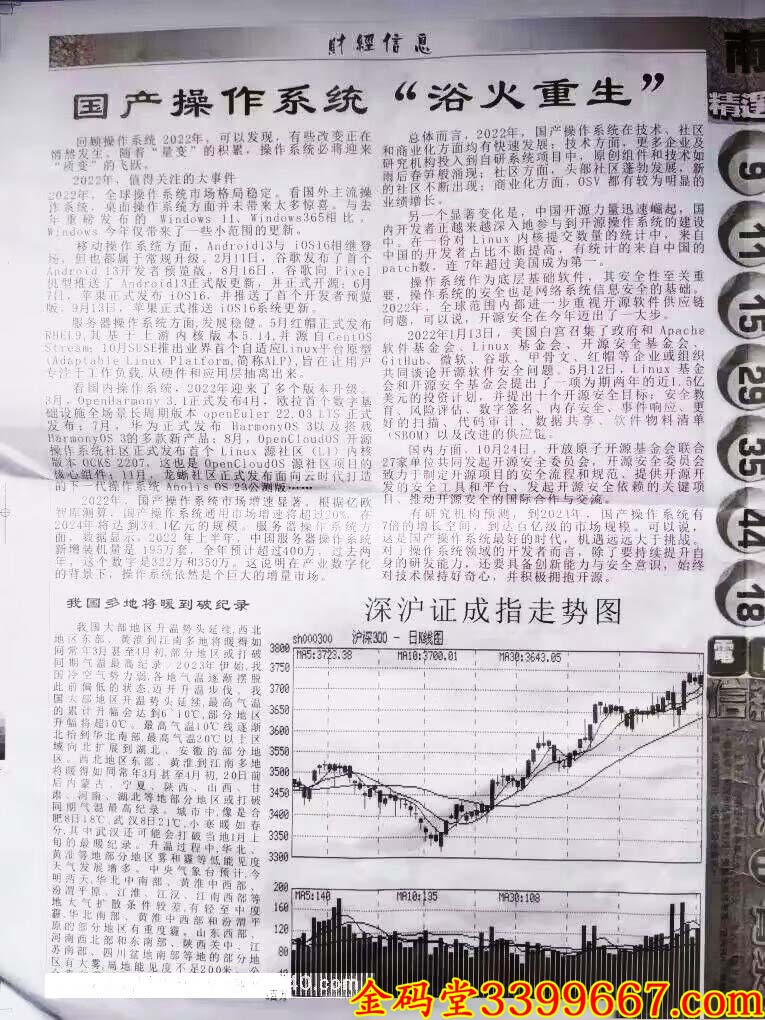 财經信息
国产操作系统“浴火重生”
回顾操作系统 2022年，可以发现，有些改变正在
悄然发生。随着“量变”的积累，操作系统必将迎来
“质变”的飞跃。
2022年，值得关注的大事件
2022年，全球操作系统市场格局稳定。看国外主流操
作系统，桌面操作系统方面并未带来太多惊喜。与去
年重磅发布的 Windows 11、Windows365相比，
Windows 今年仅带来了一些小范围的更新。
移动操作系统方面，Android13与 iOS16相继登
场，但也都属于常规升级。2月11日，谷歌发布了首个
Android 13开发者预览版，8月16日，谷歌向 Pixel
机型推送了 Android13正式版更新，并正式开源；6月
7日，苹果正式发布 iOS16，并推送了首个开发者预览
版，9月13日，苹果正式推送 iOS16系统更新。
服务器操作系统方面,发展稳健。5月红帽正式发布
RHEL9,其基于上游内核版本5.14,并源自CentOS
Stream；10月SUSE推出业界首个自适应Linux平台原型
(Adaptable Linux Platform,简称ALP),旨在让用户
专注于工作负载,从硬件和应用层抽离出来。
看国内操作系统，2022年迎来了多个版本升级。
3月，OpenHarmony 3.1正式发布4月，欧拉首个数字基
础设施全场景长周期版本 openEuler 22.03 LTS 正式
发布；7月，华为正式发布 HarmonyOS 3以及搭载
HarmonyOS 3的多款新产品；8月，OpenCloudOS 开源
操作系统社区正式发布首个 Linux 源社区 (L1) 内核
版本 OCKS 2207，这也是 OpenCloudOS 源社区项目的
核心组件；11月，龙蜥社区正式发布面向云时代打造
的下一代操作系统 Anolis OS 23公测版……
2022年，国产操作系统市场增速显著。根据亿欧
智库测算，国产操作系统通用市场增速将超过20%，在
2024年将达到34.1亿元的规模。服务器操作系统方
面，数据显示，2022 年上半年，中国服务器操作系统
新增装机量是 195万套，全年预计超过400万，过去两
年，这个数字是322万和350万。这说明在产业数字化
的背景下，操作系统依然是个巨大的增量市场。
总体而言，2022年，国产操作系统在技术、社区
和商业化方面均有快速发展：技术方面，更多企业及
研究机构投入到自研系统项目中，原创组件和技术如
雨后春笋般涌现；社区方面，头部社区蓬勃发展，新
的社区不断出现；商业化方面，OSV 都有较为明显的
业绩增长。
另一个显著变化是，中国开源力量迅速崛起，国
内开发者正越来越深入地参与到开源操作系统的建设
中。在一份对 Linux 内核提交数量的统计中，来自
中国的开发者占比不断提高，有统计的来自中国的
patch数，连 7年超过美国成为第一。
操作系统作为底层基础软件，其安全性至关重
要，操作系统的安全也是网络系统信息安全的基础。
2022年，全球范围内都进一步重视开源软件供应链
问题，可以说，开源安全在今年迈出了一大步。
2022年1月13日，美国白宫召集了政府和 Apache
软件基金会、Linux 基金会、开源安全基金会、
GitHub、微软、谷歌、甲骨文、红帽等企业或组织
共同谈论开源软件安全问题。5月12日，Linux 基金
会和开源安全基金会提出了一项为期两年的近1.5亿
美元的投资计划，并提出十个开源安全目标：安全教
育、风险评估、数字签名、内存安全、事件响应、更
好的扫描、代码审计、数据共享、软件物料清单
（SBOM）以及改进的供应链。
国内方面，10月24日，开放原子开源基金会联合
27家单位共同发起开源安全委员会。开源安全委员会
致力于制定开源项目的安全流程和规范、提供开源开
发的安全工具和平台、发起开源安全依赖的关键项
目、推动开源安全的国际合作与交流。
有研究机构预测，到2024年，国产操作系统有
7倍的增长空间，到达百亿级的市场规模。可以说，
这是国产操作系统最好的时代，机遇远远大于挑战。
对于操作系统领域的开发者而言，除了要持续提升自
身的研发能力，还要具备创新能力与安全意识，始终
对技术保持好奇心，并积极拥抱开源。
我国多地将暖到破纪录
我国大部地区升温势头延续,西北
地区东部、黄淮到江南多地将暖得如
同常年3月甚至4月初,部分地区或打破
同期气温最高纪录。2023年伊始,我
国冷空气势力弱,各地气温逐渐摆脱
此前偏低的状态,迈开升温步伐。我
国大部地区升温势头延续,最高气温
的累计升幅会达到6~10℃,部分地区
升幅将超10℃。最高气温10℃线逐渐
北抬到华北南部,最高气温20℃以上区
域向北扩展到湖北、安徽的部分地
区。西北地区东部、黄淮到江南多地
将暖得如同常年3月甚至4月初,20日前
后内蒙古、宁夏、陕西、山西、甘
肃、河南、湖北等地部分地区或打破
同期气温最高纪录。城市中,像是合
肥8日18℃,武汉8日21℃,小寒暖如春
分,其中武汉还可能会打破当地1月上
旬的最暖纪录。升温过程中,华北、
黄淮等地部分地区雾和霾等低能见度
天气发展增多。中央气象台预计,今
明两天,华北中南部、黄淮中西部、
汾渭平原、江淮、江汉、江南西部等
地大气扩散条件较差,有轻至中度
霾,华北南部、黄淮中西部和汾渭平
原的部分地区有重度霾。山东西部、
河南西北部和东南部、陕西关中、江
苏南部、四川盆地南部等地的部分地
区有大雾,局地能见度不足200米。公
深沪证成指走势图
sh000300 沪深300 - 日K线图
MA5:3723.38 MA10:3700.01 MA30:3643.05
3800
3750
3700
3650
3600
3550
3500
3450
3400
3350
3300
MA5:140 MA10:135 MA30:108
200
160
120
80
40
百万
精選
9
11
15
29
35
44
18
電
信
金码堂3399667.com